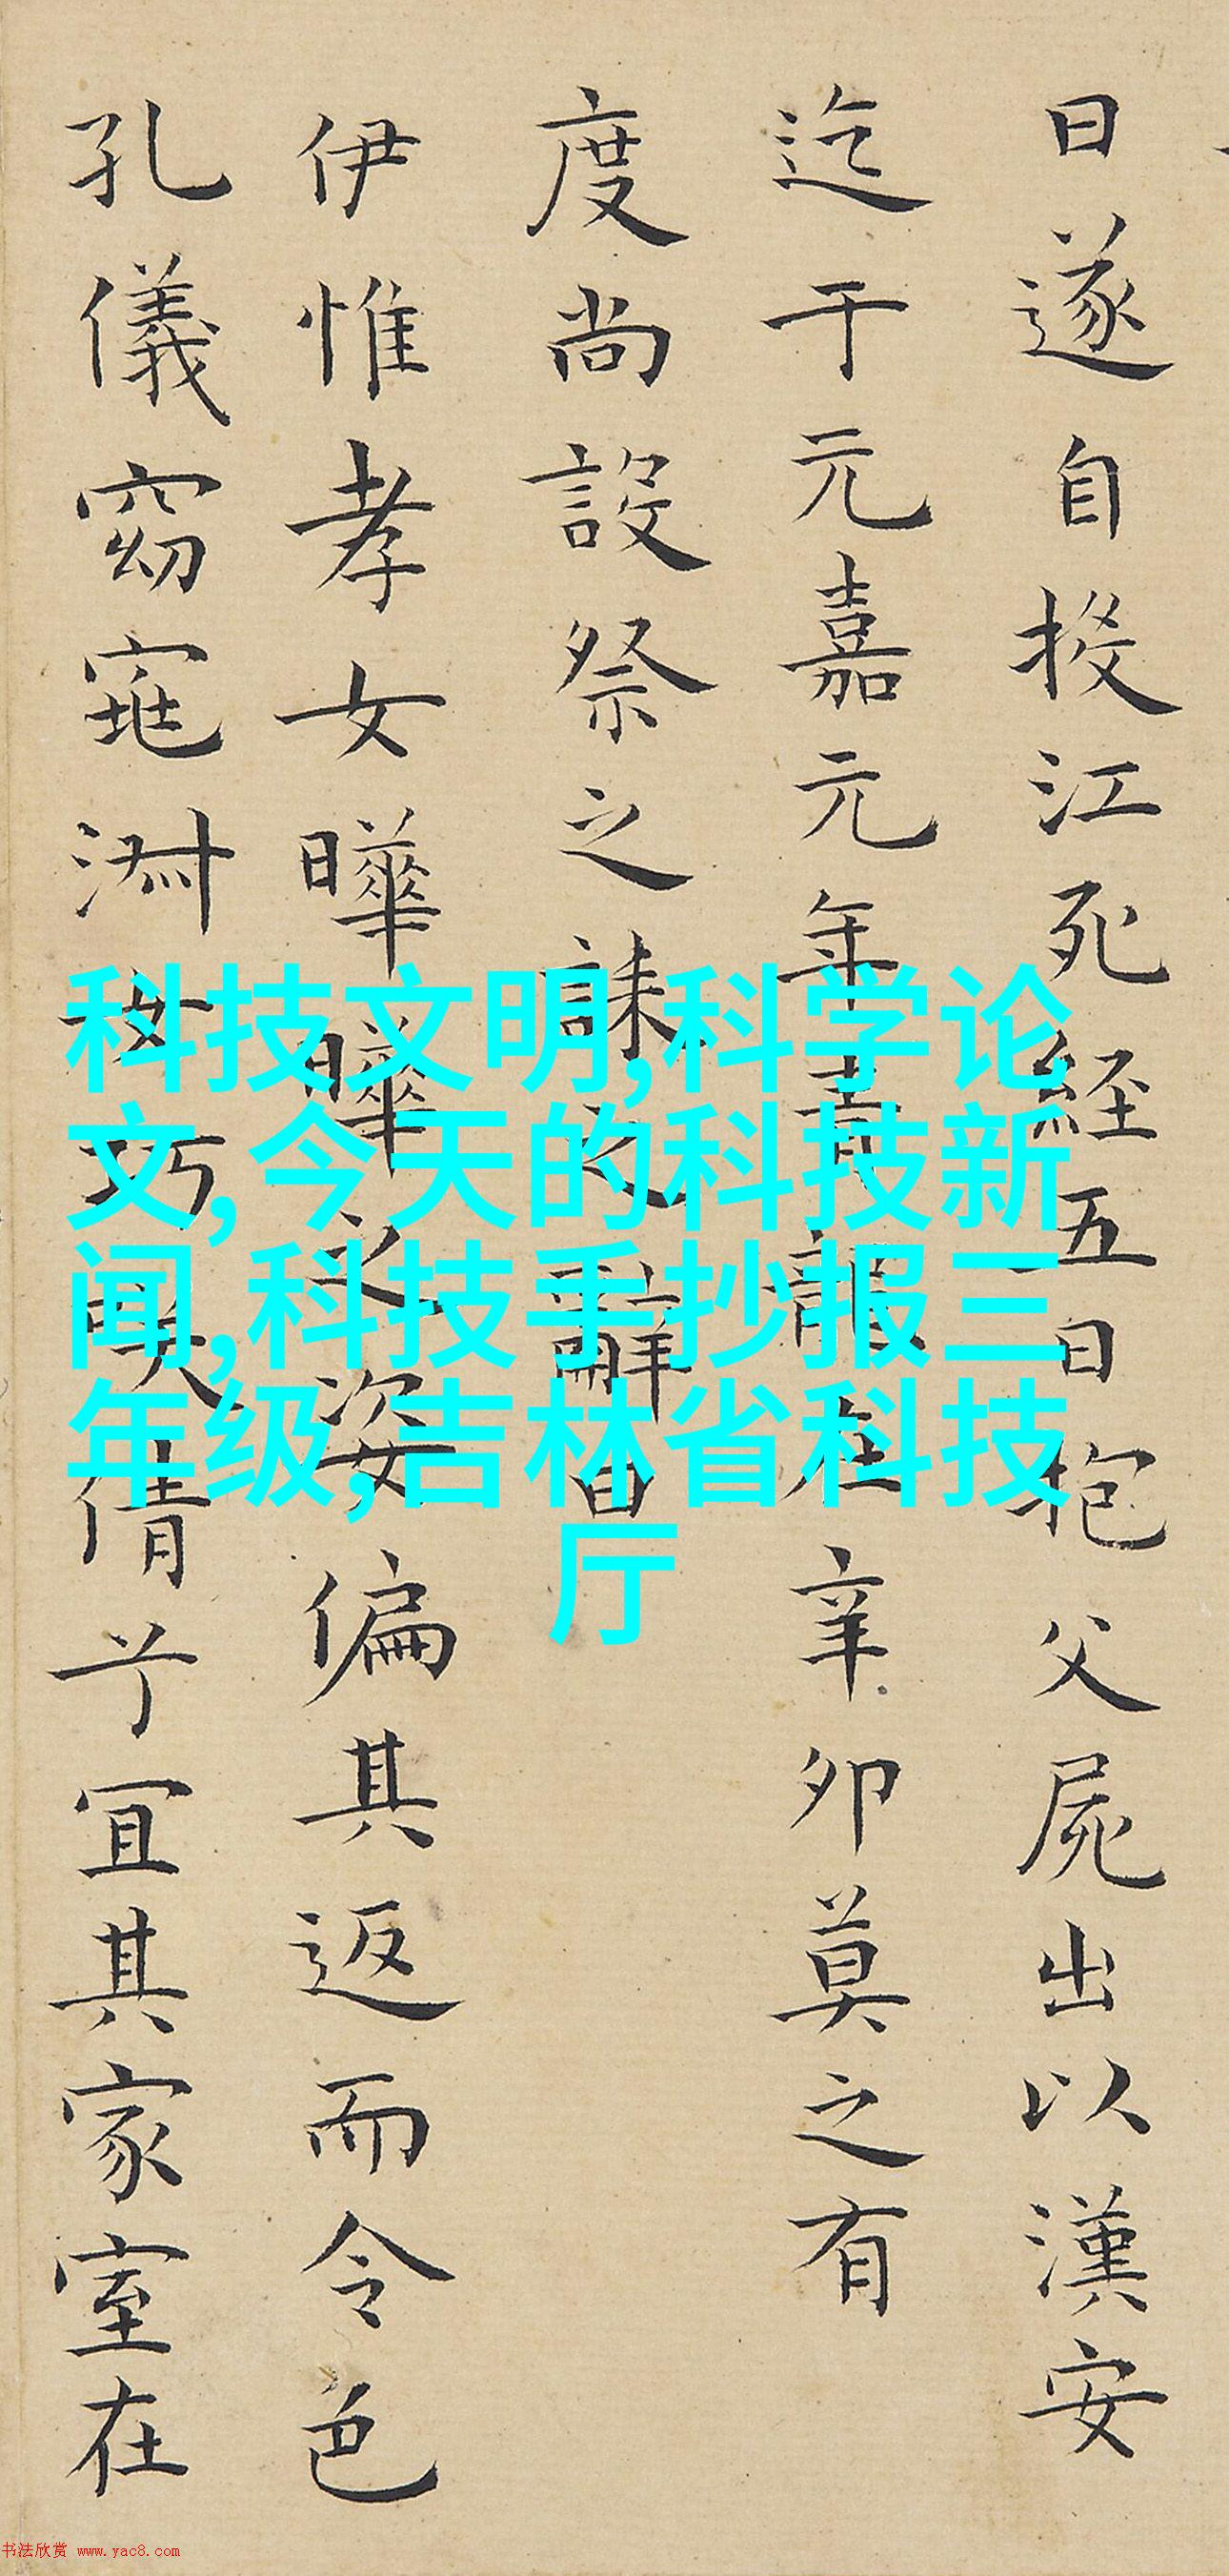 日遂自投江死經五日抱父屍出以漢安
迄于元嘉元年青龍在辛卯莫之有
度尚設祭之誄之辭曰
伊惟孝女曄曄之姿偏其返而令色
孔儀窈窕淑女巧笑倩兮宜其家室在
科技文明,科学论
文,今天的科技新
闻,科技手抄报三
年级,吉林省科技
厅
书法欣赏 www.yac8.com